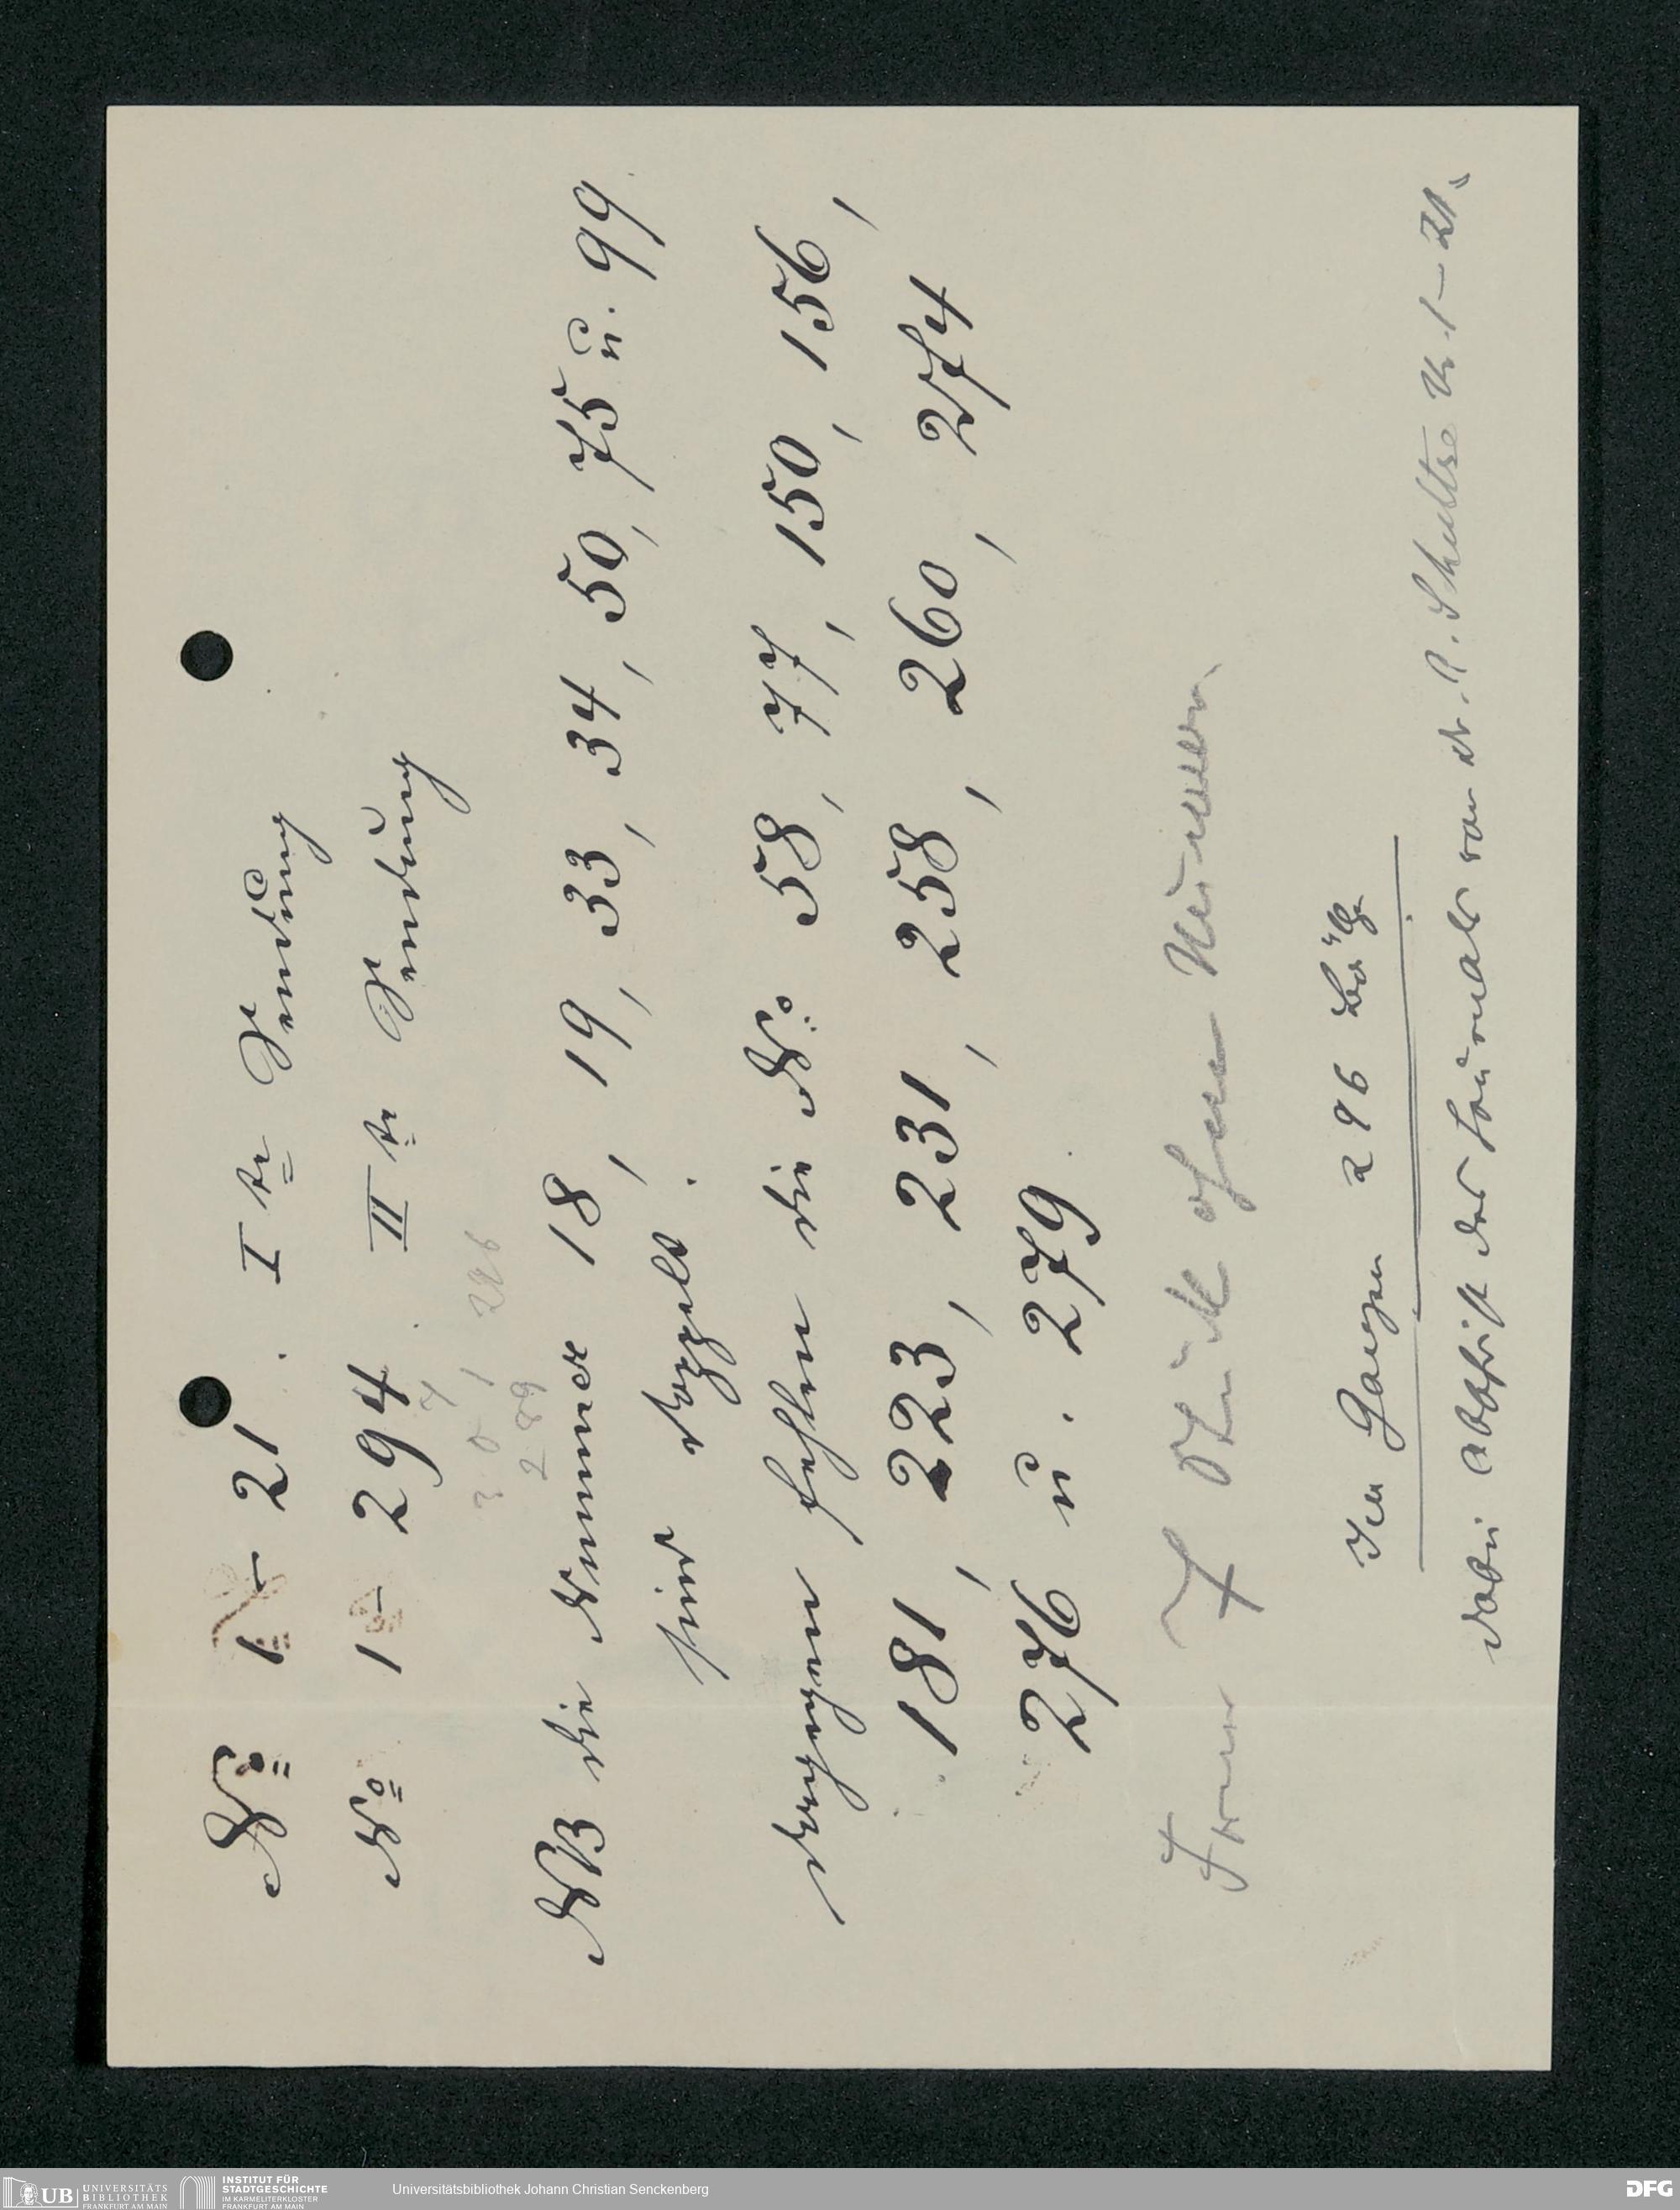 No 1 – 21. Ite Sendung
No 1 – 294 IIte Sendung
7
301 296
289
NB die Nummer 18, 19, 33, 34, 50, 75 u. 99
sind doppelt.
dagegen fehlen die No 58, 77, 150, 156,
181, 223, 231, 258, 260, 274
276 u. 279
Ferner 7 Stück ohne Nummern
Im Ganzen 296
dabei Abschrift des Journals von A. Schultze No 1–21.
UB UNIVERSITÄTS BIBLIOTHEK FRANKFURT AM MAIN
INSTITUT FÜR STADTGESCHICHTE IM KARMELITERKLOSTER FRANKFURT AM MAIN
Universitätsbibliothek Johann Christian Senckenberg
DFG